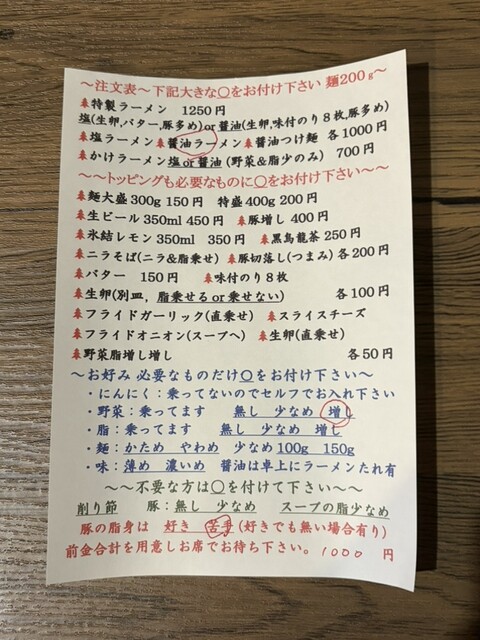 ～注文表～下記大きな〇をお付け下さい 麺200g～
🌲特製ラーメン 1250円
塩(生卵,バター,豚多め)or醤油(生卵,味付のり8枚,豚多め)
🌲塩ラーメン🌲醤油ラーメン🌲醤油つけ麺 各1000円
🌲かけラーメン塩or醤油(野菜&脂少のみ) 700円
～～トッピングも必要なものに〇をお付け下さい～～
🌲麺大盛300g 150円 特盛400g 200円
🌲生ビール350ml 450円 🌲豚増し400円
🌲氷結レモン350ml 350円 🌲黒烏龍茶250円
🌲ニラそば(ニラ&脂乗せ) 🌲豚切落し(つまみ)各200円
🌲バター 150円 🌲味付のり8枚
🌲生卵(別皿,脂乗せるor乗せない) 各100円
🌲フライドガーリック(直乗せ) 🌲スライスチーズ
🌲フライドオニオン(スープへ) 🌲生卵(直乗せ)
🌲野菜脂増し増し 各50円
～お好み 必要なものだけ〇をお付け下さい～
・にんにく:乗ってないのでセルフでお入れ下さい
・野菜:乗ってます 無し 少なめ 増し
・脂:乗ってます 無し 少なめ 増し
・麺:かため やわめ 少なめ100g 150g
・味:薄め 濃いめ 醤油は卓上にラーメンたれ有
～～不要な方は〇を付けて下さい～～
削り節 豚:無し 少なめ スープの脂少なめ
豚の脂身は 好き 苦手(好きでも無い場合有り)
前金合計を用意しお席でお待ち下さい。1000 円